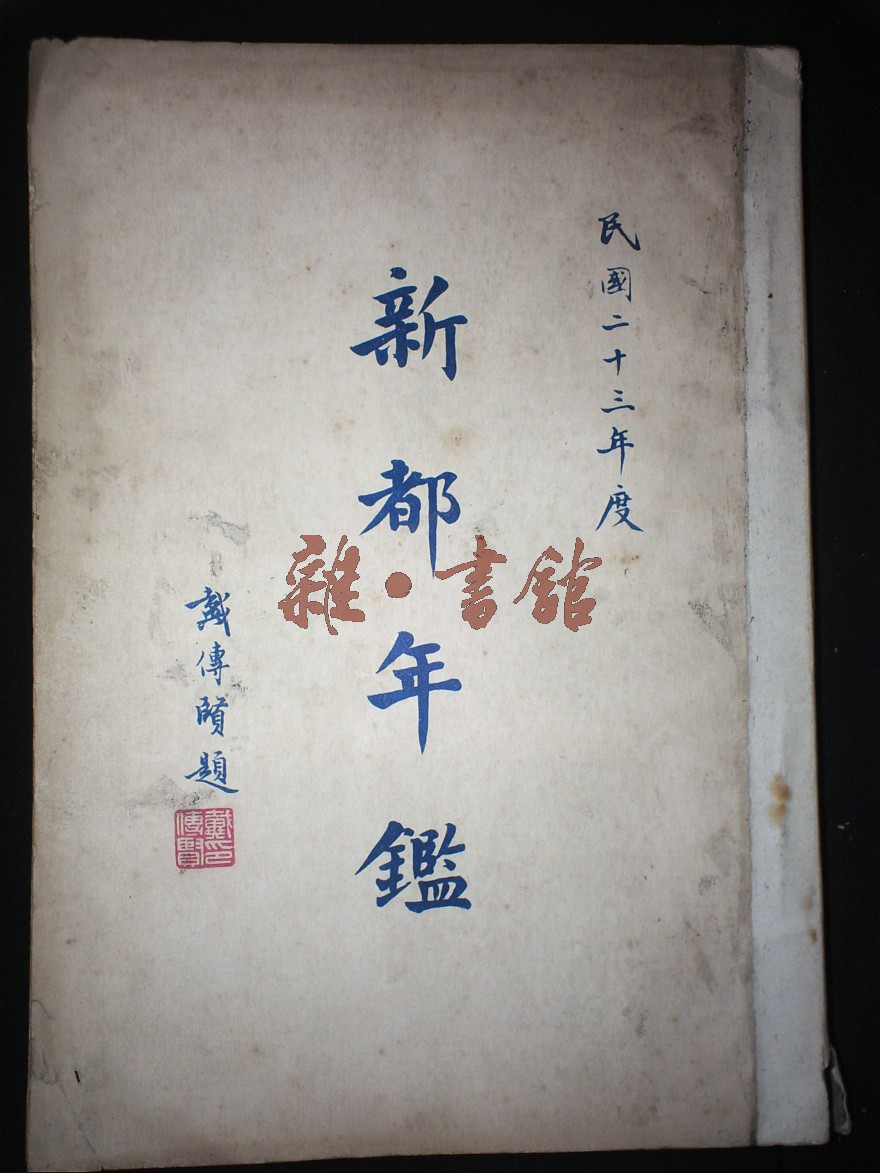 民國二十三年度
新都年鑑
戴傳賢題
戴傳賢印
雜·書館